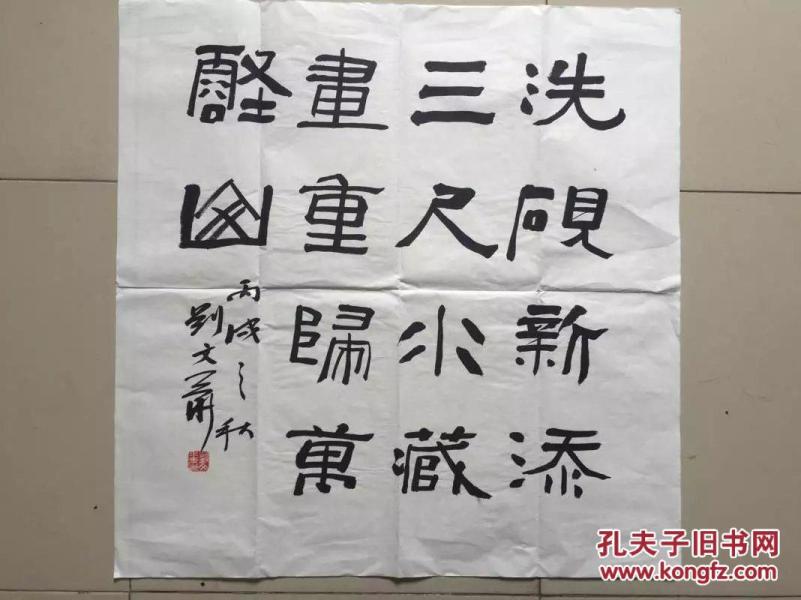 洗硯新添
三尺水藏
畫重歸萬
壑山
丙戌之秋
刘文
孔夫子旧书网
www.kongfz.com